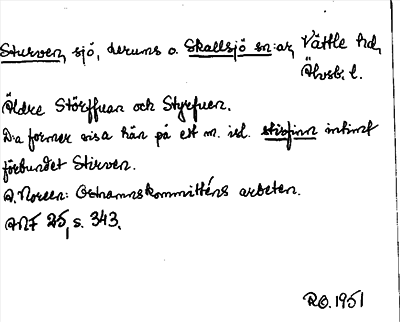 Sturven, sjö, Lerums o. Skallsjö sn:ar, Vättle hd,
Älvsb. l.
Äldre Störffuan och Styrfuen.
Da former visa hän på ett m. isl. stirfinn intimt
förbundet Stirven.
A. Noreen: Ortnamnskommitténs arbeten.
ANF 25, s. 343.
R.O. 1951